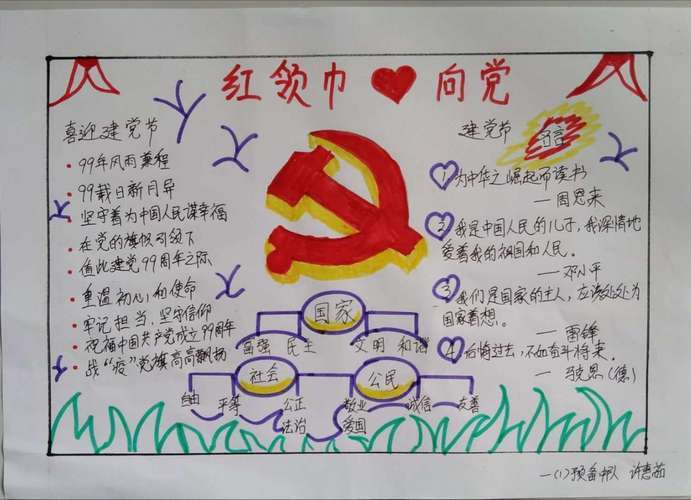 红领巾 向党
喜迎建党节
99年风雨兼程
99载日新月异
坚守善为中国人民谋幸福
在党的旗帜引领下
值此建党99周年之际
重温初心和使命
牢记担当、坚守信仰
祝福中国共产党成立99周年
战“疫”党旗高高飘扬
建党节 名言
1 为中华之崛起而读书
—周恩来
2 我是中国人民的儿子,我深情地
爱着我的祖国和人民。
—邓小平
3 我们是国家的主人,应该处处为
国家着想。
—雷锋
4 后悔过去,不如奋斗将来。
—马克思(德)
国家
富强 民主 文明 和谐
社会 公民
自由 平等 公正 法治 敬业 爱国 诚信 友善
一(1)预备中队 许惠茹